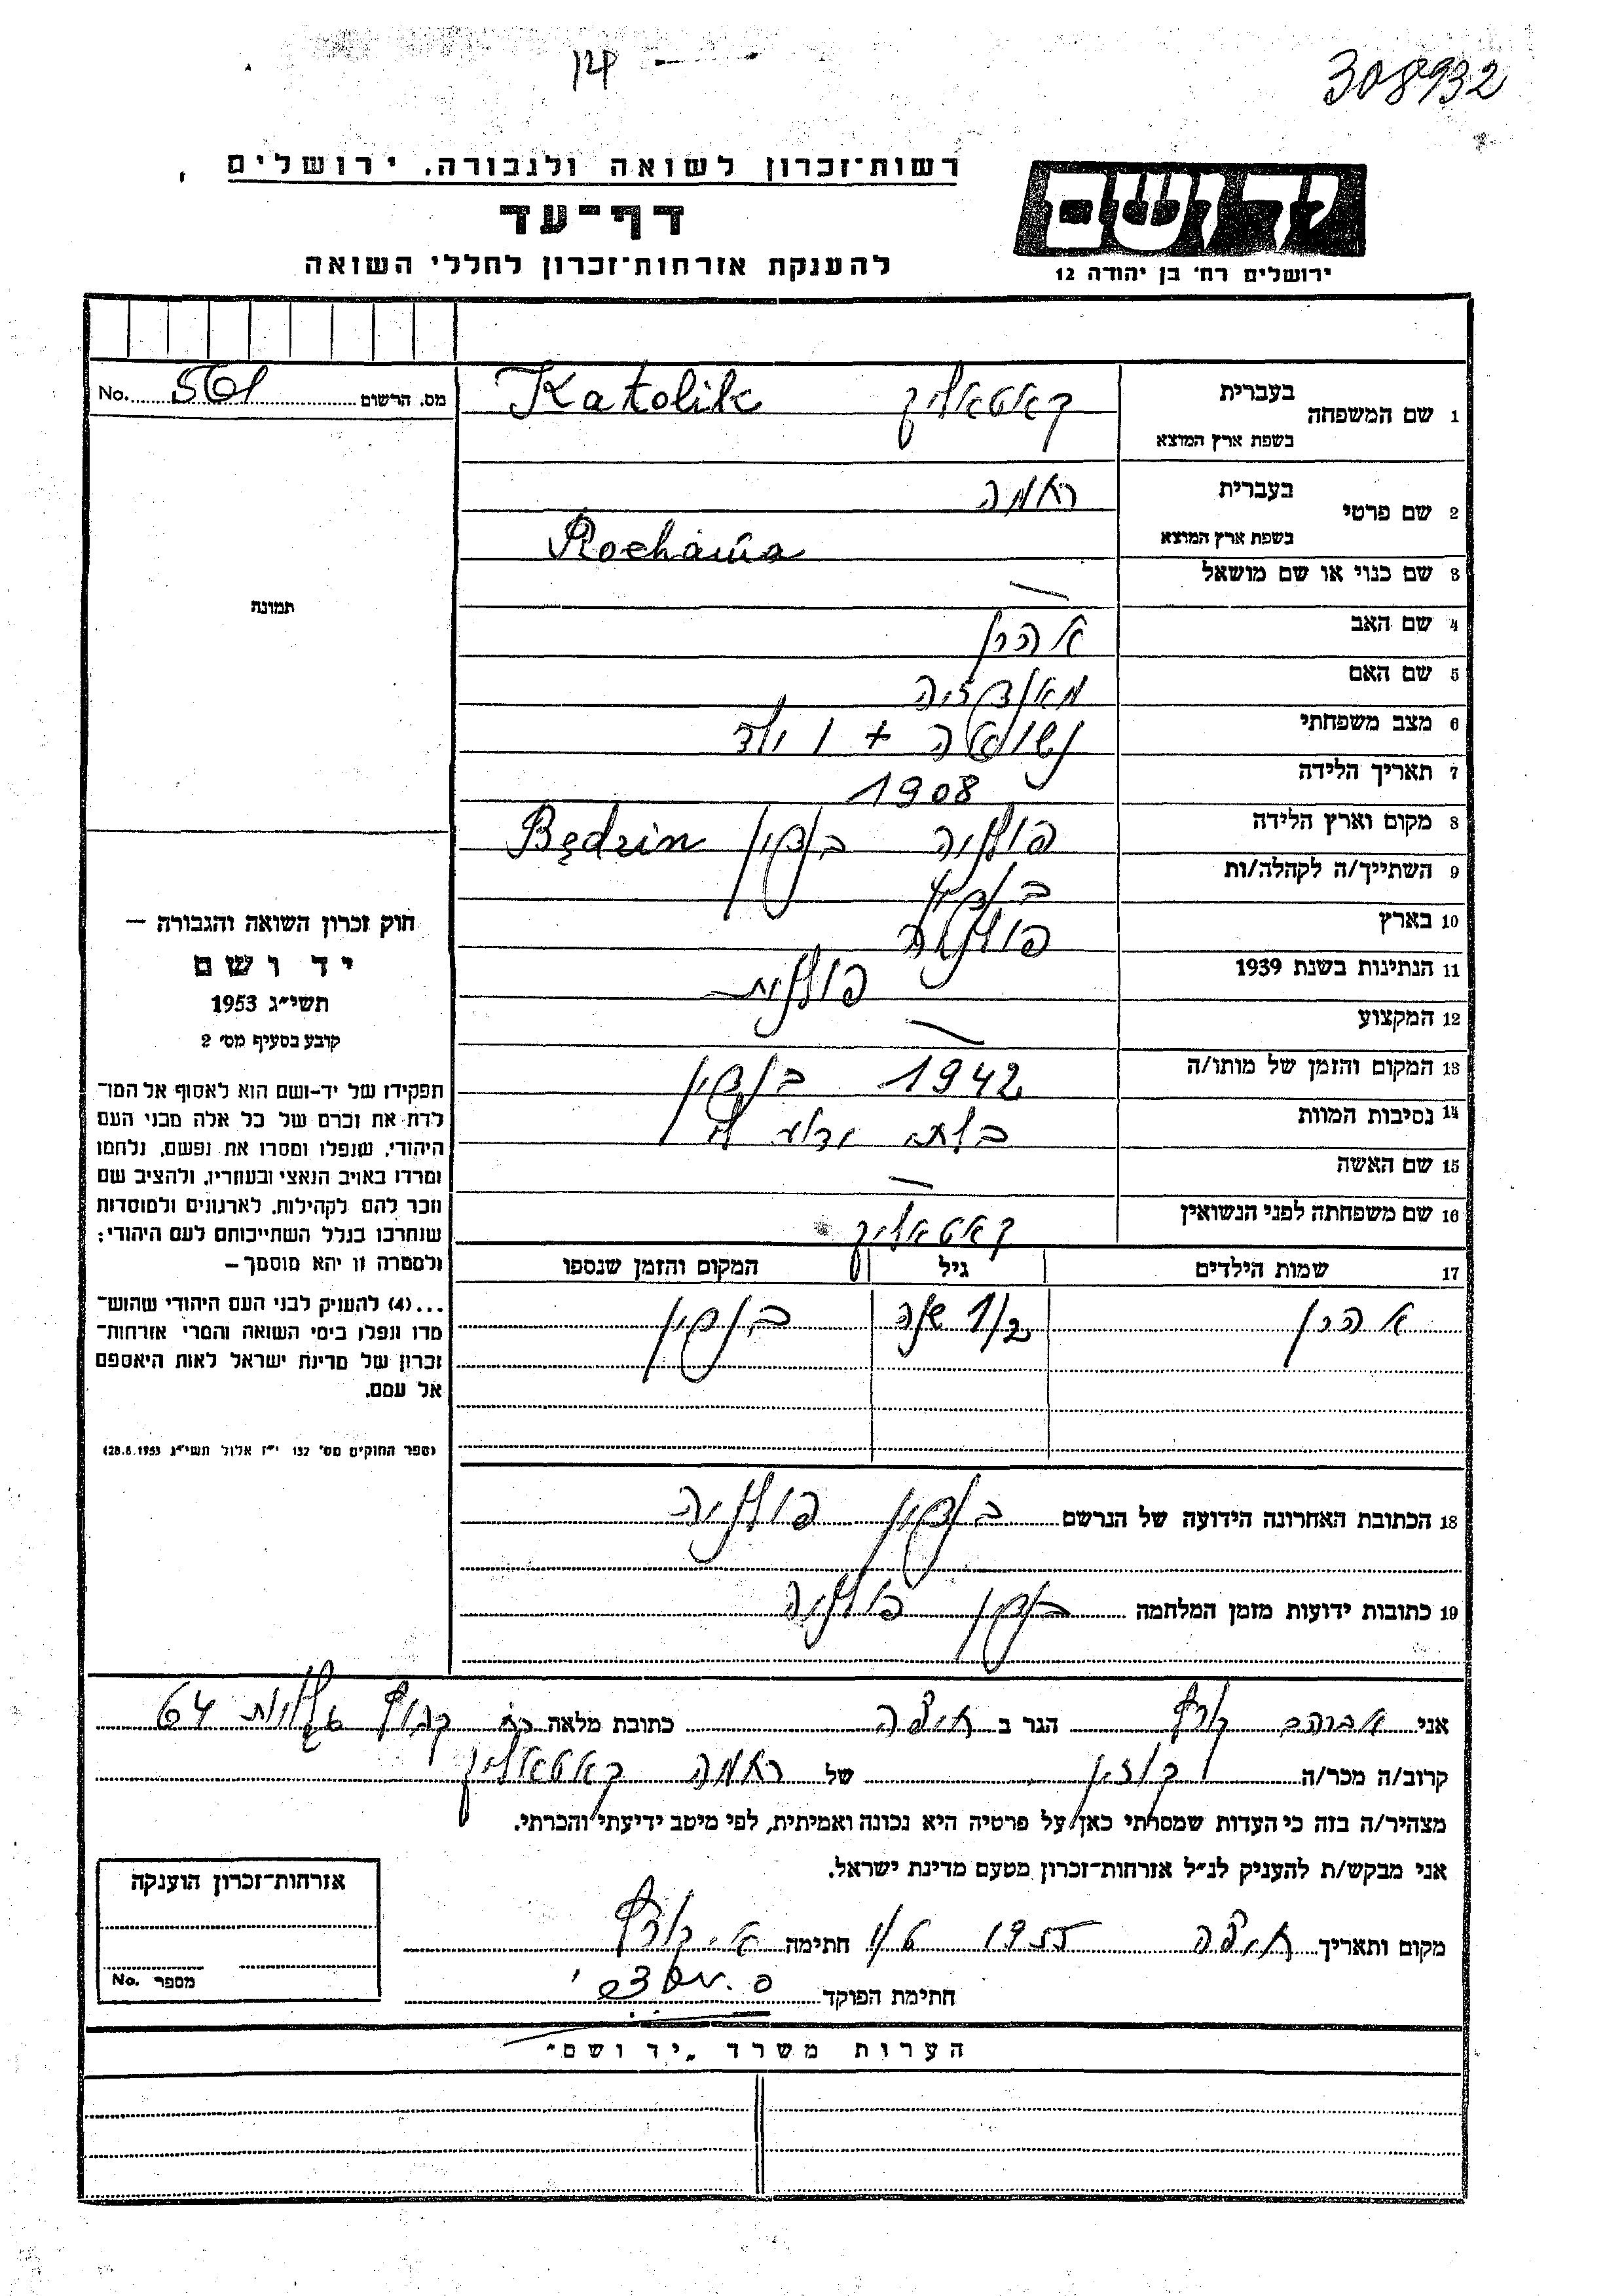 308932
רשות־זכרון לשואה ולגבורה, ירושלים
דף־עד
להענקת אזרחות־זכרון לחללי השואה
יד ושם
ירושלים רח׳ בן יהודה 12
מס. הרשום 561 No.
בעברית
1 שם המשפחה קאטאליק Katolik
בשפת ארץ המוצא
בעברית
2 שם פרטי
בשפת ארץ המוצא
3 שם כנוי או שם מושאל —
4 שם האב אהרן
5 שם האם
6 מצב משפחתי נשואה + 1 ילד
7 תאריך הלידה 1908
8 מקום וארץ הלידה פולניה בנדין Będzin
9 השתייך/ה לקהלה/ות בנדין
10 בארץ פולניה
11 הנתינות בשנת 1939 פולנית
12 המקצוע —
13 המקום והזמן של מותו/ה 1942 בנדין
14 נסיבות המוות בלתי ידוע
15 שם האשה —
16 שם משפחתה לפני הנשואין קאטאליק
17 שמות הילדים גיל המקום והזמן שנספו
אהרן שנה בנדין
18 הכתובת האחרונה הידועה של הנרשם בנדין פולניה
19 כתובות ידועות מזמן המלחמה בנדין פולניה
תמונה
חוק זכרון השואה והגבורה —
יד ושם
תשי״ג 1953
קובע בסעיף מס׳ 2
תפקידו של יד-ושם הוא לאסוף אל המו־
לדת את זכרם של כל אלה מבני העם
היהודי, שנפלו ומסרו את נפשם, נלחמו
ומרדו באויב הנאצי ובעוזריו, ולהציב שם
וזכר להם לקהילות, לארגונים ולמוסדות
שנחרבו בגלל השתייכותם לעם היהודי;
ולמטרה זו יהא מוסמך —
...(4) להעניק לבני העם היהודי שהוש־
מדו ונפלו בימי השואה והמרי אזרחות־
זכרון של מדינת ישראל לאות היאספם
אל עמם.
(ספר החוקים מס׳ 132 י״ז אלול תשי״ג 28.8.1953)
אני אברהם הגר ב חיפה כתובת מלאה קבוץ גלויות 64
קרוב/ה מכר/ה קוזין של קאטאליק
מצהיר/ה בזה כי העדות שמסרתי כאן על פרטיה היא נכונה ואמיתית, לפי מיטב ידיעתי והכרתי.
אני מבקש/ת להעניק לנ״ל אזרחות־זכרון מטעם מדינת ישראל.
מקום ותאריך חיפה 1955 חתימה
חתימת הפוקד
אזרחות־זכרון הוענקה
מספר No.
הערות משרד „יד ושם״